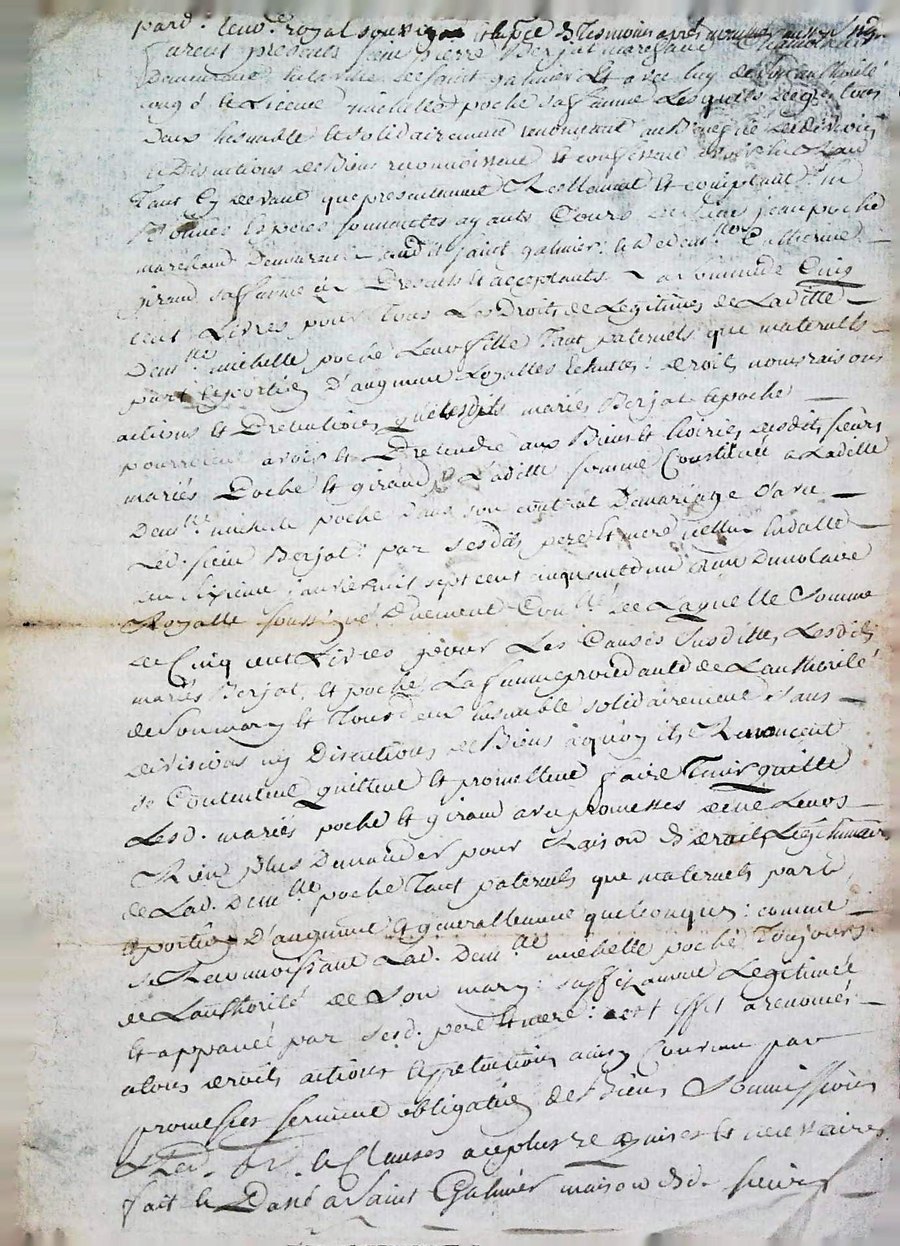 pard. le no.re royal soussigné et presence des tesmoins apres nommés
furent presents sieur pierre Berjat marchand
demeurant de saint galmier et avec luy de son authorité
congé et licence michelle poche sa famme Lesquels de gré tous
Deux hensemble et solidairement renonceant au Benefice de division
et Discutions de Biens reconnoissent et confessent avoir heu et Receu
Tant cy devant que presentement Reellement et comptant en
bonnes Especes sonnantes ayants Cours de sieur jean poche
marchand Demeurant audit saint galmier et de dem.lle Catherine
giraud sa famme icy Presents et acceptants La somme de Cinq
cent Livres pour tous Les Droits de Legitimes de Laditte
Dem.lle michelle poche Leur fille Tant paternels que maternels
part et portion D'augment Loyalles Echuttes: droits noms raisons
actions et Pretentions que lesdits mariés Berjat et poche
pourroient avoir et Pretendre aux Biens et hoiries desdits sieurs
mariés Poche et giraud, Laditte somme Constituée a Laditte
Dem.lle michelle poche dans son contrat De mariage d'avec
Led. sieur Berjat: par sesdits pere et mere receu Laditte
année mil sept cent cinquante un notaire
Royalle soussigné Duement Con.llé de Laquelle Somme
de Cinq cent Livres pour Les Causes susdittes Lesdits
mariés Berjat, et poche La famme procedante de Lauthorité
de son mary et Tous deux hensemble solidairement sans
divisions ny Discutions de Biens a quoy ils Renoncent
se Contentent quittent et promettent faire tenir quitte
Lesd. mariés poche et giraud avec promesses de ne Leurs
Rien plus Demander pour Raison des droits Legitimaires
de Lad. Dem.lle poche Tant paternels que maternels part
et portion D'augment et generallement quelconques: comme
se Reconnoissant Lad. Dem.lle michelle poche Toujours
de Lauthorité de Son mary: suffisament Legitimée
et appanée par sesd. pere et mere: a cet effet a renoncé
a tous droits actions et pretentions ainsy Convenu par
promesses serment obligation de Biens Soumissions
Ren.on et Clauses a ce plus requises et necessaires
fait et Passé a Saint Galmier maison desd. sieurs